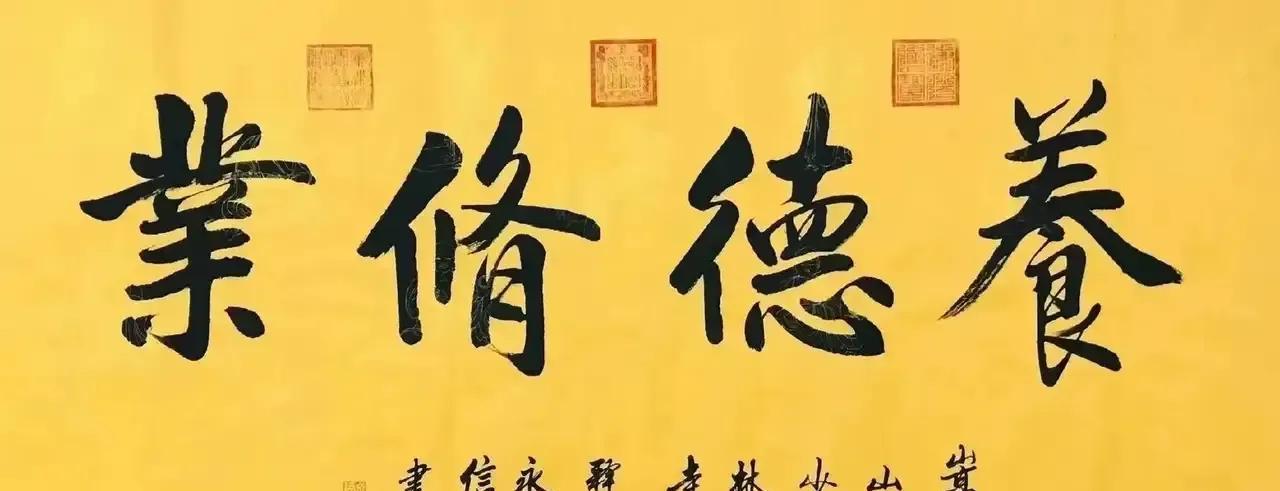 養德脩業
嵩山少林寺釋永信書